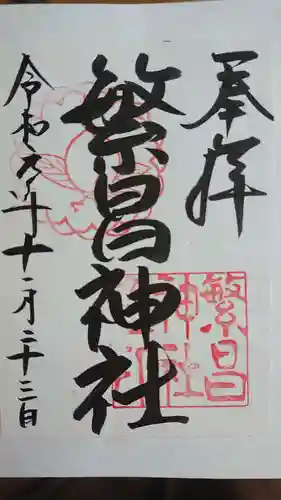 奉拝
繁昌神社
繁昌
神社
令和六年十一月二十三日